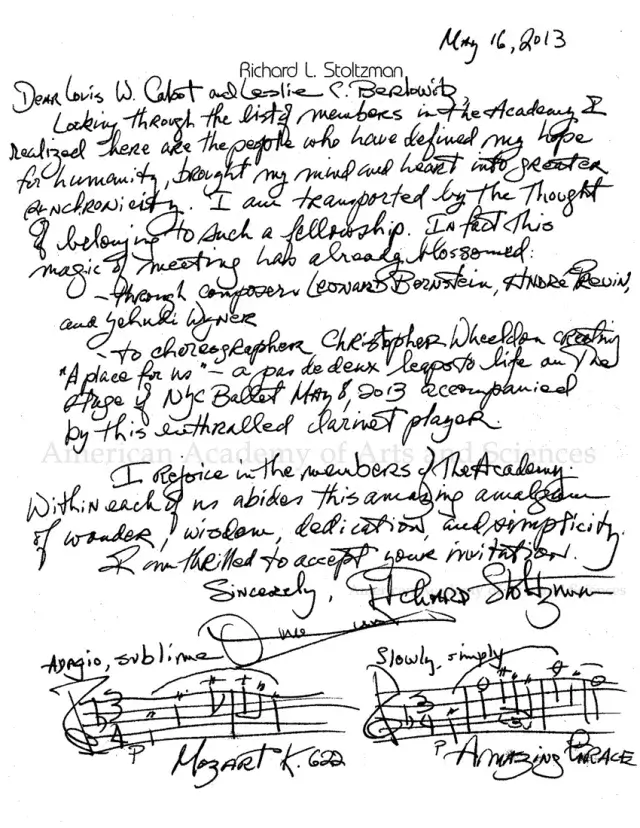 May 16, 2013
Richard L. Stoltzman
Dear Louis W. Cabot and Leslie C. Berlowitz,
Looking through the list of members in the Academy I
realized here are the people who have defined my hope
for humanity, brought my mind and heart into greater
synchronicity. I am transported by the thought
of belonging to such a fellowship. In fact this
magic of meeting has already blossomed:
- through composers Leonard Bernstein, Andre Previn,
and Yehudi Wyner
- to choreographer Christopher Wheeldon creating
"A place for us" - a pas de deux leaps to life on the
stage of NYC Ballet May 8, 2013 accompanied
by this enthralled clarinet player
American Academy of Arts and Sciences
I rejoice in the members of the Academy.
Within each of us abides this amazing amalgam
of wonder, wisdom, dedication, and simplicity.
I am thrilled to accept your invitation.
Sincerely, Richard Stoltzman
Adagio, sublime
Slowly, simply
3 4
3 4
P
P
Mozart K. 622
Amazing Grace